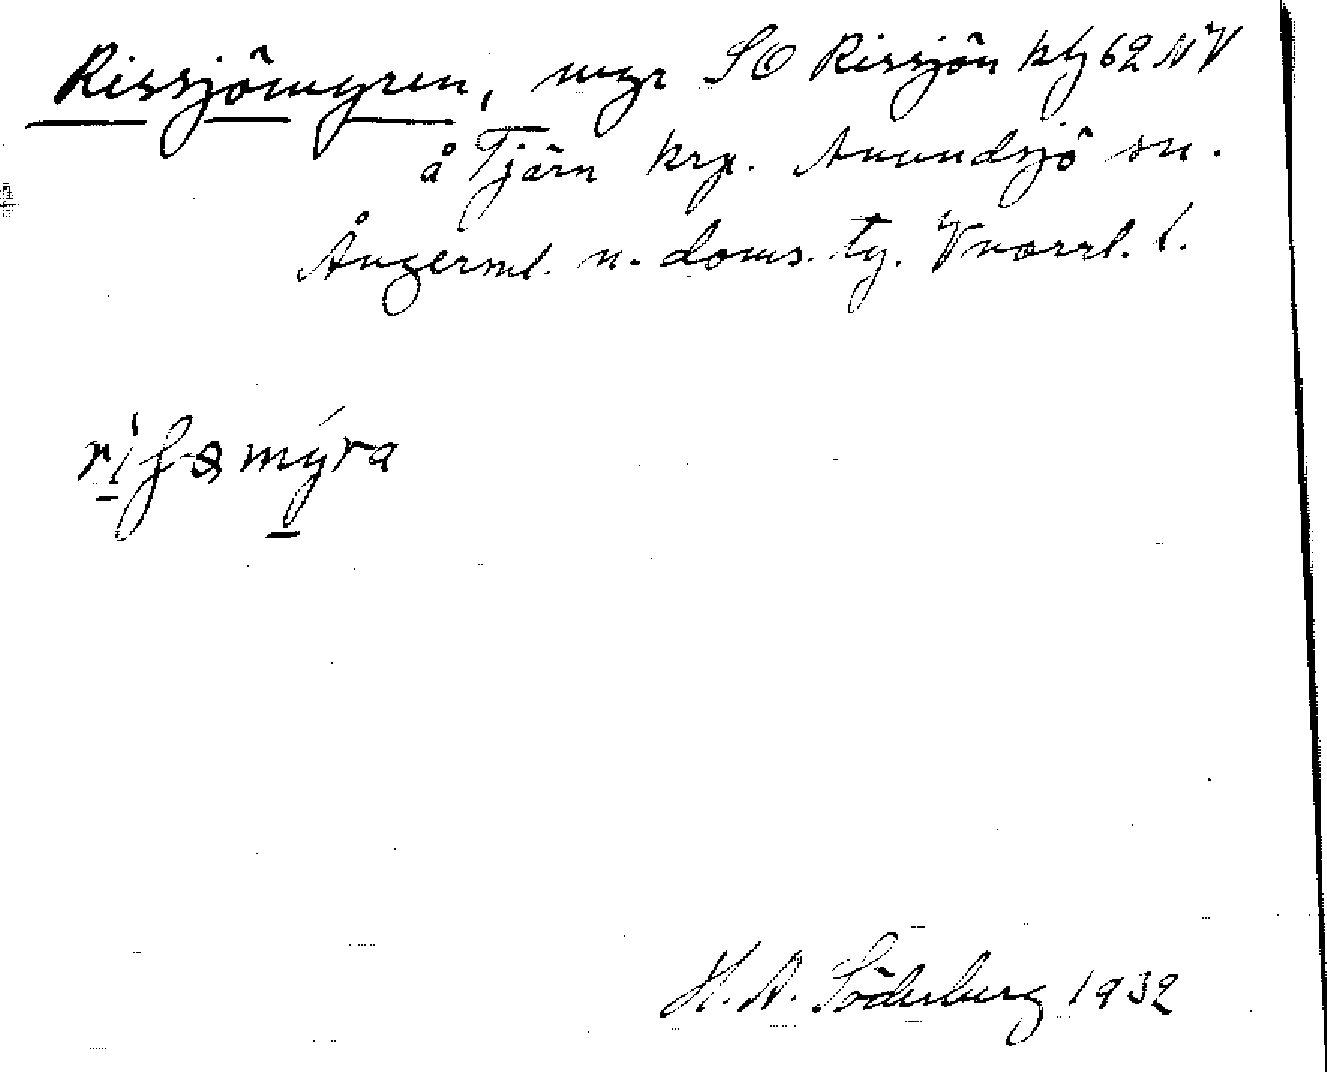 Rissjömyren, myr SO Rissjön kbl 62 NV
å Tjärn krp. Anundsjö sn.
Ångerml. n. doms. tg. Vnorrl. l.
mýra
H. A. Söderberg 1932